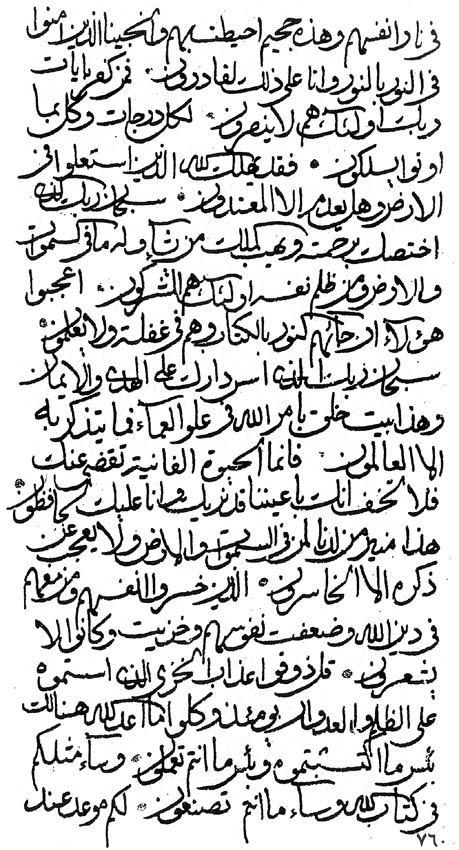 في نار انفسهم وهذه جحيم احيطت بهم وانجينا الذين امنوا
في النور بالنور وانا على ذلك لقادرون فمن كفر بايات
ربك اولئك هم لا ينصرون لكل درجات وكل بما
اوتوا يسلكون فقد يهلك الله الذين استعلوا في
الارض وهل يعدم الا المعتدون سبحان ربك الذي
اختصك برحمته ويهب الملك من يشاء وله ما في السموات
والارض ومن ظلم نفسه اولئك هم المشركون اعجبوا
هؤلاء ان جائهم النور بالكتاب وهم في غفلة ولا يعلمون
سبحان ربك الذي اسر دارك على الهدى والايمان
وهذا بيت خلق بامر الله في علو العماء فما يتذكر به
الا العالمون فانما الحيوة الفانية تقضى عنك
فلا تخف انك باعيننا قد نزيك وانا عليك لحافظون
هذا منير من لدنا لمن في السموات والارض ولا يعجب عن
ذكره الا الخاسرون الذين خسروا انفسهم ومن معهم
في دين الله وضعفت نفوسهم وخزيت وكانوا لا
يشعرون قل ذوقوا عذاب الخزي الذي استموه
على الظلم والعدوان يومئذ وكلوا مما اعد الله هنالك
بئس ما اكتسبتموه وبئس ما انتم تعملون وساء مثلكم
في كتاب الله وساء ما انتم تصنعون لكم موعد عند
٧٦٠